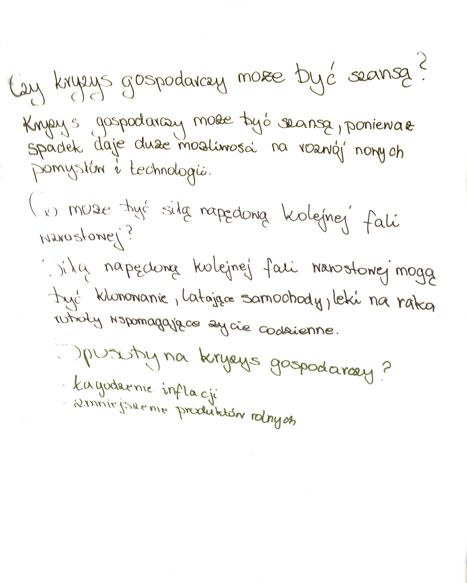 Czy kryzys gospodarczy może być szansą?
Kryzys gospodarczy może być szansą, ponieważ
spadek daje duże możliwości na rozwój nowych
pomysłów i technologii.
może być siłą napędową kolejnej fali
wzrostowej?
Siłą napędową kolejnej fali wzrostowej mogą
być klonowanie, latające samochody, leki na raka
roboty wspomagające życie codzienne.
na kryzys gospodarczy?
- Łagodzenie inflacji
- zmniejszenie produktów rolnych